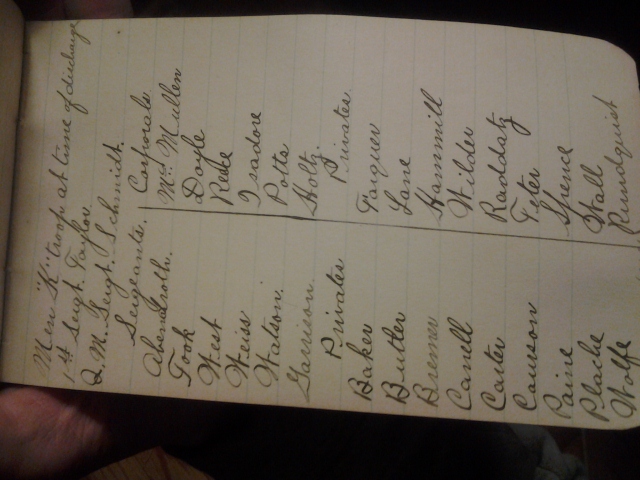 Men "K" troop at time of discharge
1st Seigt. Taylor
Q.M. Seigt. Schmidt.
Seigeants.
Abendroth.
Took
West
Weiss
Watson.
Garrison.
Privates
Baker
Butler
Bremer
Casell
Carter
Cawson
Paine
Plache
Wolfe
Corporals
McMullen
Doyle
Rede
Isadore
Potts
Holtz.
Privates
Farquer
Lane
Hammill
Wilder
Raddatz
Teter
Spence
Stall
Rundquist